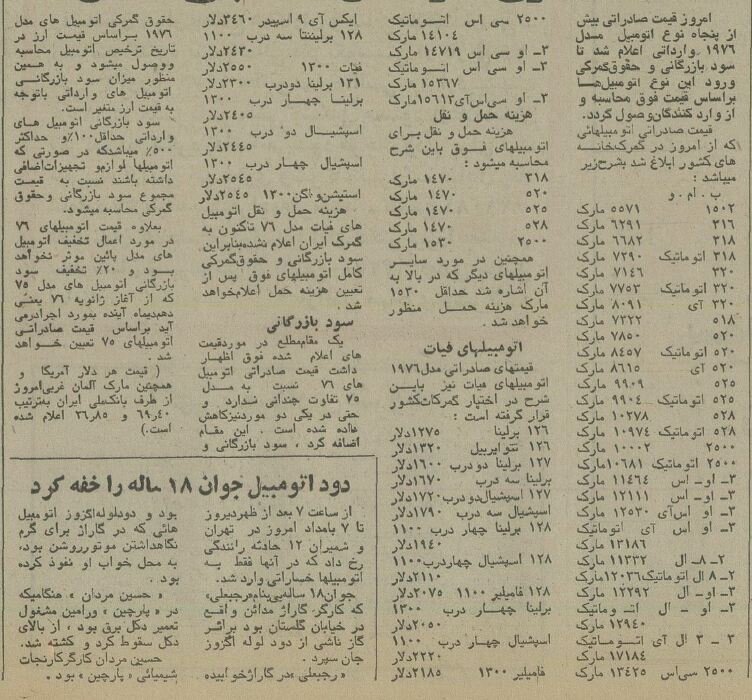 امروز قیمت صادراتی بیش
از پنجاه نوع اتومبیل مدل
۱۹۷۶ وارداتی اعلام شد تا
سود بازرگانی و حقوق‌گمرکی
ورود این نوع اتومبیل‌ها
براساس قیمت فوق محاسبه و
از واردکنندگان وصول گردد.
قیمت صادراتی اتومبیلهائی
که از امروز در گمرک‌خانه
های کشور ابلاغ شد بشرح‌زیر
میباشد:
ب . ام . و
۱۵۰۲ ۵۵۷۱ مارک
۳۱۶ ۶۲۹۱ مارک
۳۱۸ ۶۶۸۲ مارک
۳۱۸ اتوماتیک ۷۲۹۰ مارک
۳۲۰ ۷۱۴۶ مارک
۳۲۰ اتوماتیک ۷۷۵۳ مارک
۳۲۰ آی ۸۰۹۱ مارک
۵۱۸ ۷۳۲۲ مارک
۵۲۰ ۷۸۵۰ مارک
۵۲۰ اتوماتیک ۸۴۵۷ مارک
۵۲۰ آی ۸۶۱۵ مارک
۵۲۵ ۹۹۰۹ مارک
۵۲۵ اتوماتیک ۹۹۰۴ مارک
۵۲۸ ۱۰۲۷۸ مارک
۵۲۸ اتوماتیک ۱۰۹۷۴ مارک
۲۵۰۰ ۱۰۰۰۲ مارک
۲۵۰۰ اتوماتیک ۱۰۶۸۱ مارک
۳ـ او ـ اس ۱۱۴۶۴ مارک
۳ـ او ـ اس ۱۲۱۱۱ مارک
۳ـ او اس‌آی ۱۲۵۳۰ مارک
۳ـ او اس آی اتوماتیک
۱۳۱۸۶ مارک
۲ـ۸ـ ال ۱۱۳۳۲ مارک
۲ـ ۸ ال اتوماتیک ۱۲۰۳۶ مارک
۳ـ او ـ ال ۱۲۲۹۲ مارک
۳ـ او ـ ال اتـوماتیک
۱۲۹۴۰ مارک
۳ ـ ۳ ال آی اتـوماتیک
۱۷۱۸۴ مارک
۲۵۰۰ سی‌اس ۱۳۴۲۵ مارک
۲۵۰۰ سی اس اتـوماتیک
۱۴۱۰۴ مارک
۳ـ او سی اس ۱۴۷۱۹ مارک
۳ـ او سی اس اتـوماتیک
۱۵۳۶۷ مارک
۳ـ او سی‌اس‌آی ۱۵۶۱۳ مارک
هزینه حمل و نقل
هزینه حمل و نقل بـرای
اتومبیلهای فـوق باین شرح
محاسبه میشود :
۳۱۸ ۱۴۷۰ مارک
۵۲۰ ۱۴۷۰ مارک
۵۲۵ ۱۴۷۰ مارک
۵۲۸ ۱۴۷۰ مارک
۲۵۰۰ ۱۵۳۰ مارک
همچنین در مورد سایـر
اتومبیلهای دیگر که در بالا به
آن اشاره شد حداقل ۱۵۳۰
مارک هزینه حمـل منظور
خواهد شد .
اتومبیلهای فیات
قیمتهای صادراتی مدل۱۹۷۶
اتومبیلهای فیات نیز بایـن
شرح در اختیار گمرکات‌کشور
قرار گرفته است :
۱۲۶ برلینا ۱۲۷۵دلار
۱۲۶ تتواپریبل ۱۳۲۰دلار
۱۲۷ برلینا دو درب ۱۶۰۰دلار
برلینا سه درب ۱۶۷۰دلار
۱۲۷ اسپشیال‌دو درب۱۷۲۰دلار
اسپشیال سه درب ۱۷۹۰دلار
۱۲۸ برلینا چهار درب ۱۱۰۰
۱۹۴۰دلار
۱۲۸ اسپشیال چهاردرب۱۱۰۰
۲۱۱۰دلار
۱۲۸ فامیلیر ۱۱۰۰ ۲۰۷۵دلار
برلینا چهـار درب ۱۳۰۰
۲۰۵۰دلار
اسپشیال چهار درب ۱۱۰۰
۲۲۲۰دلار
فامیلیر ۱۳۰۰ ۲۱۸۵دلار
ایکس آی ۹ اسپیدر ۳۴۶۰دلار
۱۲۸ برلینتا سه درب ۱۱۰۰
۲۴۳۰دلار
فیات ۱۳۰۰ ۲۵۵۰دلار
۱۳۱ برلینا دودرب ۲۳۰۰دلار
برلینـا چهـار درب ۱۳۰۰
۲۴۰۵دلار
اسپشیـال دو درب ۱۳۰۰
۲۴۴۵دلار
اسپشیال چهـار درب ۱۳۰۰
۲۵۴۵دلار
استیشن‌واگن۱۳۰۰ ۲۵۴۵دلار
هزینه حمل و نقل اتومبیل
های فیات مدل ۷۶ تاکنون به
گمرک ایران اعلام نشده‌بنابراین
سود بازرگانی و حقوق‌گمرکی
کامل اتومبیلهای فوق پس از
تعیین هزینه حمل اعلام‌خواهد
شد .
سود بازرگانی
یک مقام‌مطلع در موردقیمت
های اعلام شده فوق اظهـار
داشت قیمت صادراتی اتومبیل
های ۷۶ نسبت به مـدل
۷۵ تفاوت چندانی ندارد و
حتی در یکی دو موردنیزکاهش
داده شده است . این مقـام
اضافه کرد ، سود بازرگانی و
حقوق گمرکی اتومبیل های مدل
۱۹۷۶ بـراساس قیمت ارز در
تاریخ ترخیص اتومبیل محاسبه
ووصول میشود و به همین
منظور میزان سود بازرگانـی
اتومبیل های وارداتی باتوجه
به قیمت ارز متغیر است.
سود بازرگانی اتومبیل های
وارداتی حداقل۱۰۰٪و حداکثر
۵۰۰٪ میباشدکه در صورتی که
اتومبیلها لوازم‌و تجهیزات‌اضافی
داشته باشند نسبت به قیمت
مجموع سود بازرگانی وحقوق
گمرکی محاسبه میشود.
بعلاوه قیمت اتومبیلهای ۷۶
در مورد اعمال تخفیف اتومبیل
های مدل پائین موثر نخواهد
بـود و ۲۰٪ تخفیف سود
بازرگانی اتومبیل های مدل ۷۵
که از آغاز ژانویه ۷۶ یعنـی
دهم‌دیماه آینده بمورد اجرادرمی
آید براساس قیمت صادراتـی
اتومبیلهای ۷۵ تعیین خـواهد
شد .
( قیمت هر دلار آمریکا و
همچنین مارک آلمان غربی‌امروز
از طرف بانک‌ملی ایران به‌ترتیب
۶۹٫۴۰ و ۲۶٫۸۵ اعلام شده
است.)
دود اتومبیل جوان ۱۸ ساله را خفه کرد
از ساعت ۷ بعد از ظهردیروز
تا ۷ بامداد امروز در تهران
و شمیران ۱۲ حادثه رانندگی
رخ داد که در آنها فقط به
اتومبیلها خساراتی وارد شد.
جوان۱۸ ساله‌یی‌بنام«رجبعلی»
که کارگر گاراژ مدائن واقـع
در خیابان گلستان بود براثـر
گاز ناشی از دود لوله اگزوز
جان سپرد .
« رجبعلی »در گاراژخوابیده
بود و دودلوله‌اگزوز اتومبیل
هائی که در گاراژ برای گرم
نگاهداشتن موتورروشن بود،
به محل خواب او نفوذ کرده
بود .
« حسین مردان » هنگامیکه
در «پارچین» ورامین مشغول
تعمیر دکل برق بود ، از بالای
دکل سقوط کرد و کشته شد.
حسین مردان کارگرکارخانجات
شیمیائی «پارچین» بود .